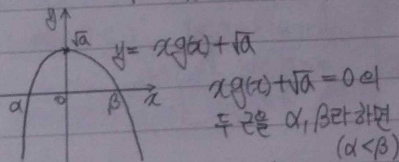 y
√a
y = xg(x)+√a
α
0
β
x
xg(x)+√a = 0의
두 근을 α, β라 하면
(α<β)